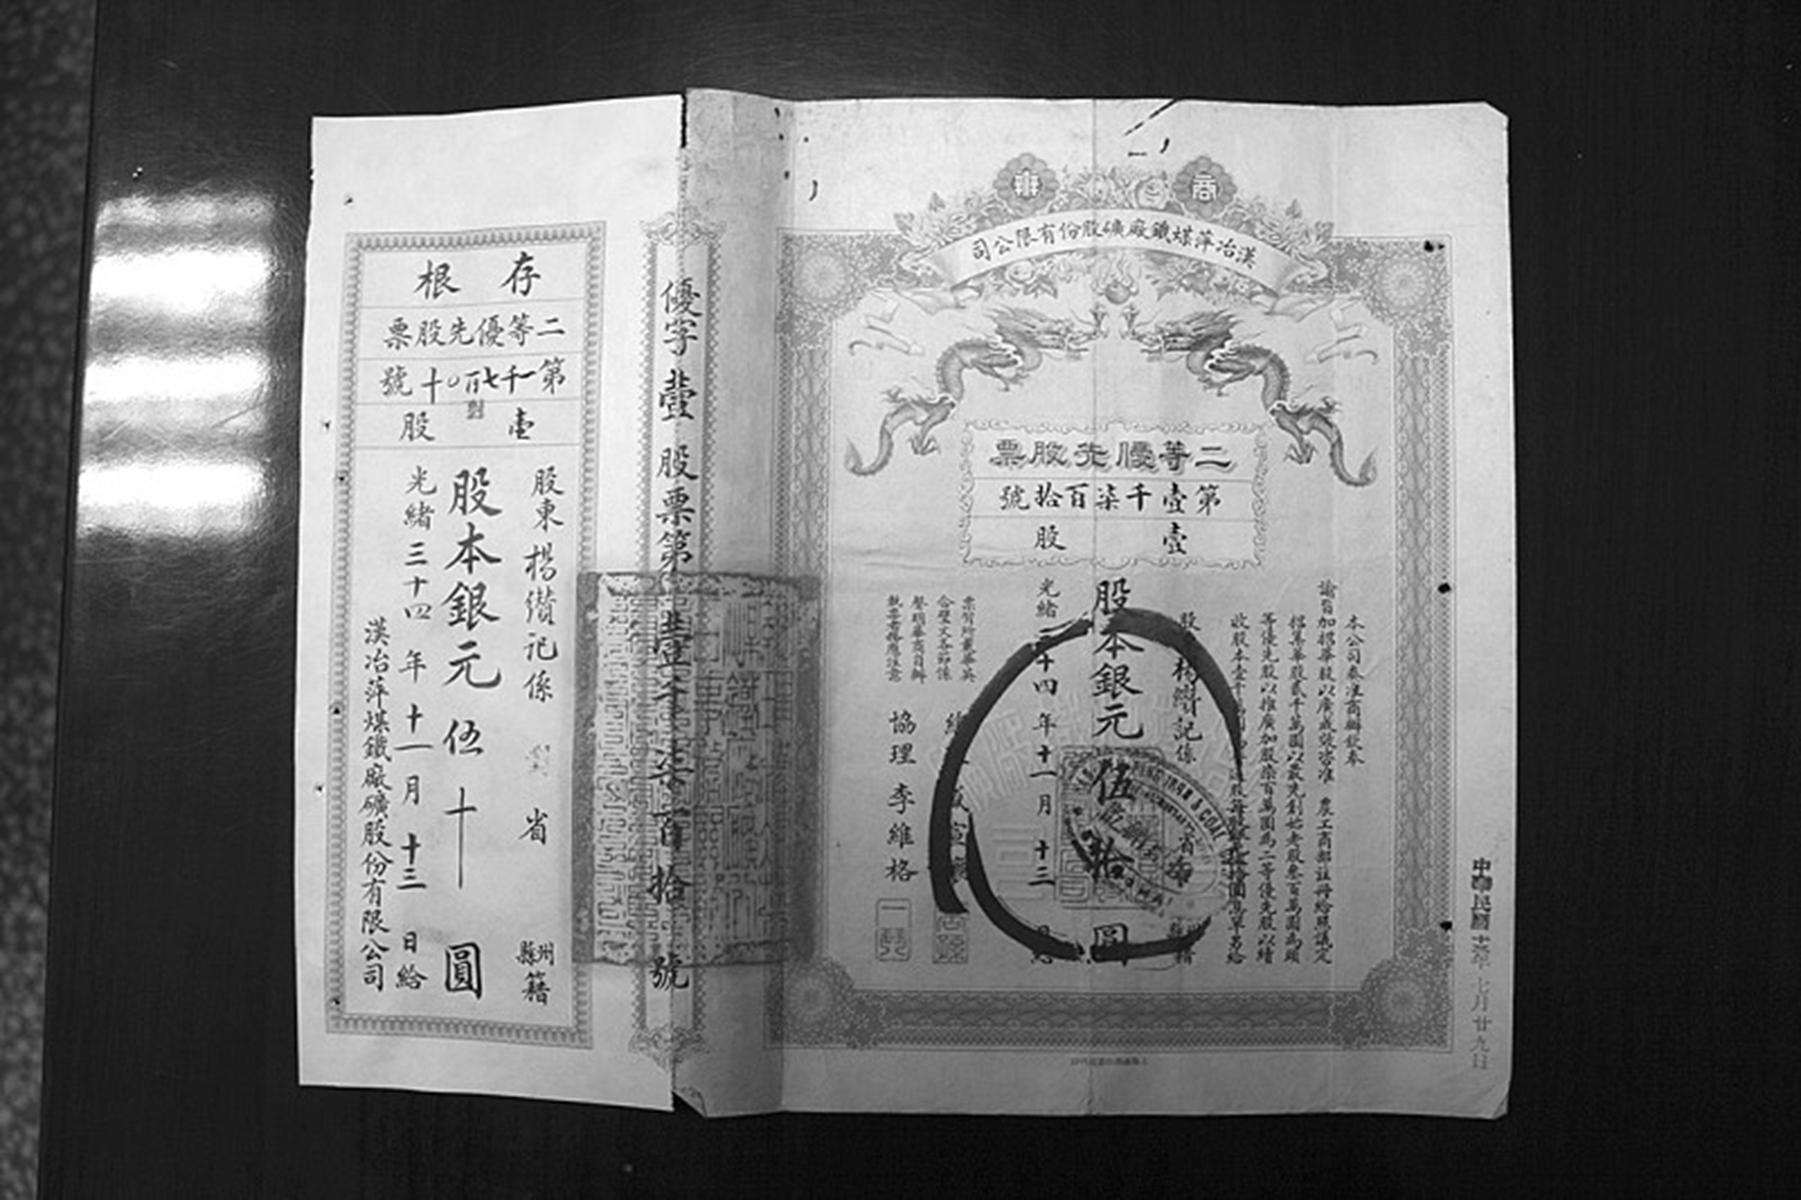 商辦
漢冶萍煤鐵廠礦股份有限公司
二等優先股票
第壹千柒百拾號
壹股
本公司奏准商辦欽奉
諭旨加招華股以廣成效咨准 農工商部註冊給照議定
招集華股貳千萬圓以最先創始老股叁百萬圓為頭
等優先股以推廣加股柒百萬圓為二等優先股以續
收股本壹千
楊纘記係 省
股本銀元伍拾圓
光緒三十四年十一月十三日給
票背所載華英
合璧文各節係
聲明華商自辦
執票者務應注意
協理李維格
中華民國 年七月廿九日
優字壹股票第壹千柒百拾號
存根
二等優先股票
第一千七百〇十號
對
壹股
股東楊纘記係 省 州縣籍
股本銀元伍十圓
光緒三十四年十一月十三日給
漢冶萍煤鐵廠礦股份有限公司